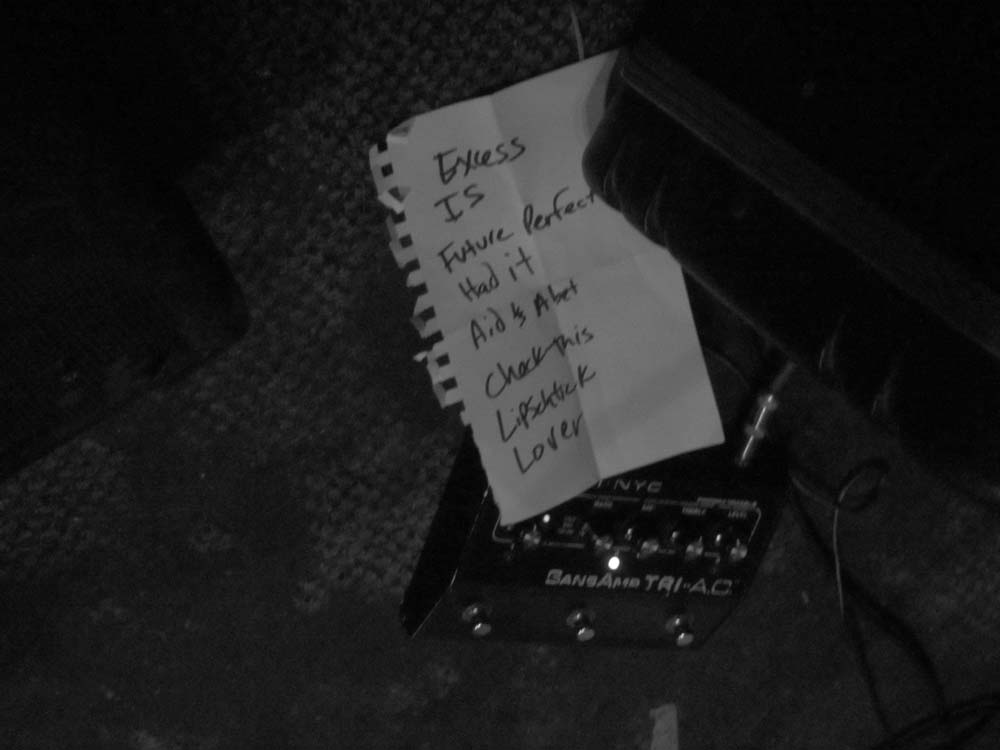 Excess
IS
Future Perfect
Had it
Aid & Abet
Check This
Lipschtick
Lover
NYC
LEVEL
SANSAMP TRI-A.C.